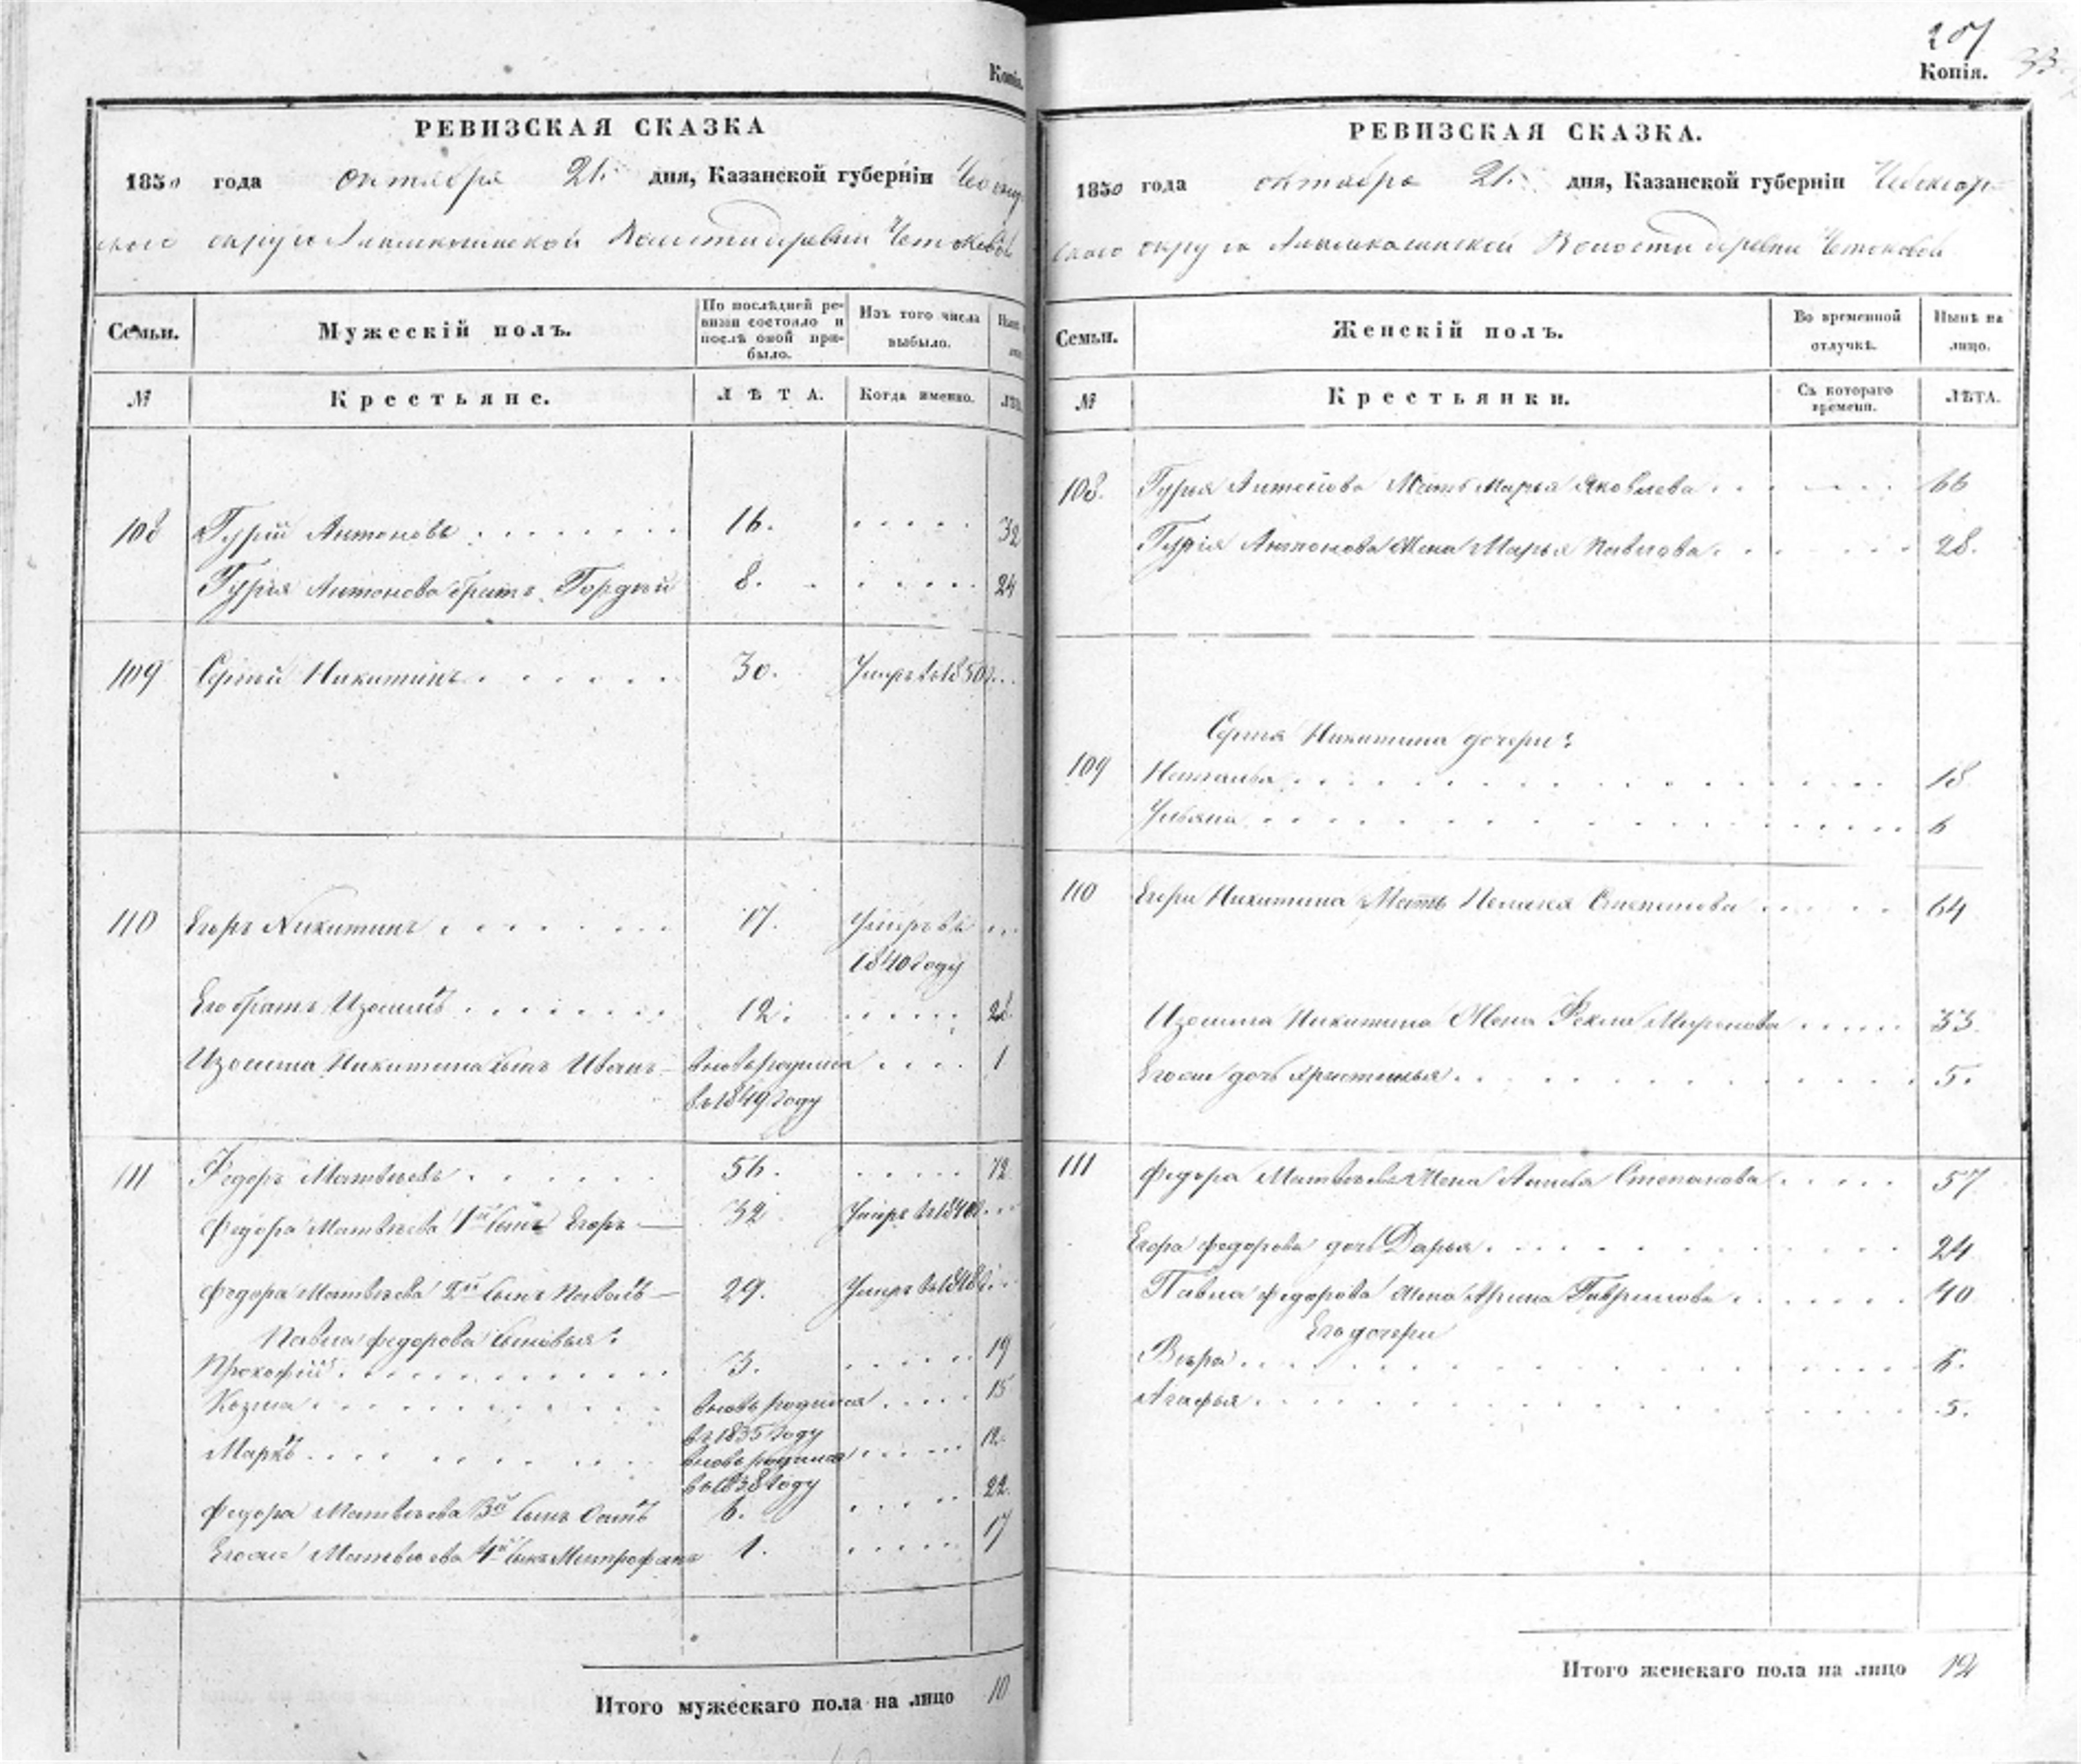 Копія.
РЕВИЗСКАЯ СКАЗКА
1850 года октября 21. дня, Казанской губерніи
округа волости деревни
Семьи. Мужескій полъ. По послѣдней ре-
визіи состояло и
послѣ оной при-
было. Изъ того числа
выбыло.
№ Крестьяне. ЛѢТА. Когда именно. ЛѢТА.
108 Гурій Антоновъ 16. 32
Гурія Антонова братъ Гордѣй 8. 24
109 Сергѣй Никитинъ 30. Умеръ въ 1850
110 Егоръ Никитинъ 17. Умеръ въ
1840 году
Его братъ Изосимъ 12. 28
Изосима Никитина сынъ Иванъ вновь родился 1
въ 1849 году
111 Федоръ Матвѣевъ 56. 72
Федора Матвѣева 1й сынъ Егоръ 32 Умеръ въ
Федора Матвѣева 2й сынъ Павелъ 29. Умеръ въ
Павла Федорова сыновья:
Прокофій 3. 19
Козма вновь родился 15
въ 1835 году
Маркъ вновь родился 12
въ 1838 году
Федора Матвѣева 3й сынъ 6. 22
Матвѣева 4й сынъ Митрофанъ 1. 17
Итого мужескаго пола на лицо 10
207
Копія.
РЕВИЗСКАЯ СКАЗКА.
1850 года октября 21. дня, Казанской губерніи Чебоксар-
скаго округа волости деревни
Семьи. Женскій полъ. Во временной
отлучкѣ. Нынѣ на
лицо.
№ Крестьянки. Съ котораго
времени. ЛѢТА.
108. Гурья Антонова Мать Марья Яковлева 66
Гурія Антонова Жена Марья Павлова 28.
Сергѣя Никитина дочери:
109 Наталья 18
Ульяна 6
110 Егора Никитина Мать Степанова 64
Изосима Никитина Жена Фекла Миронова 33
дочь Христинья 5.
111 Федора Матвѣева Жена Степанова 57
Егора Федорова дочь Дарья 24
Павла Федорова жена Арина Гаврилова 40
Его дочери
Вѣра
Агафья 5.
Итого женскаго пола на лицо 12